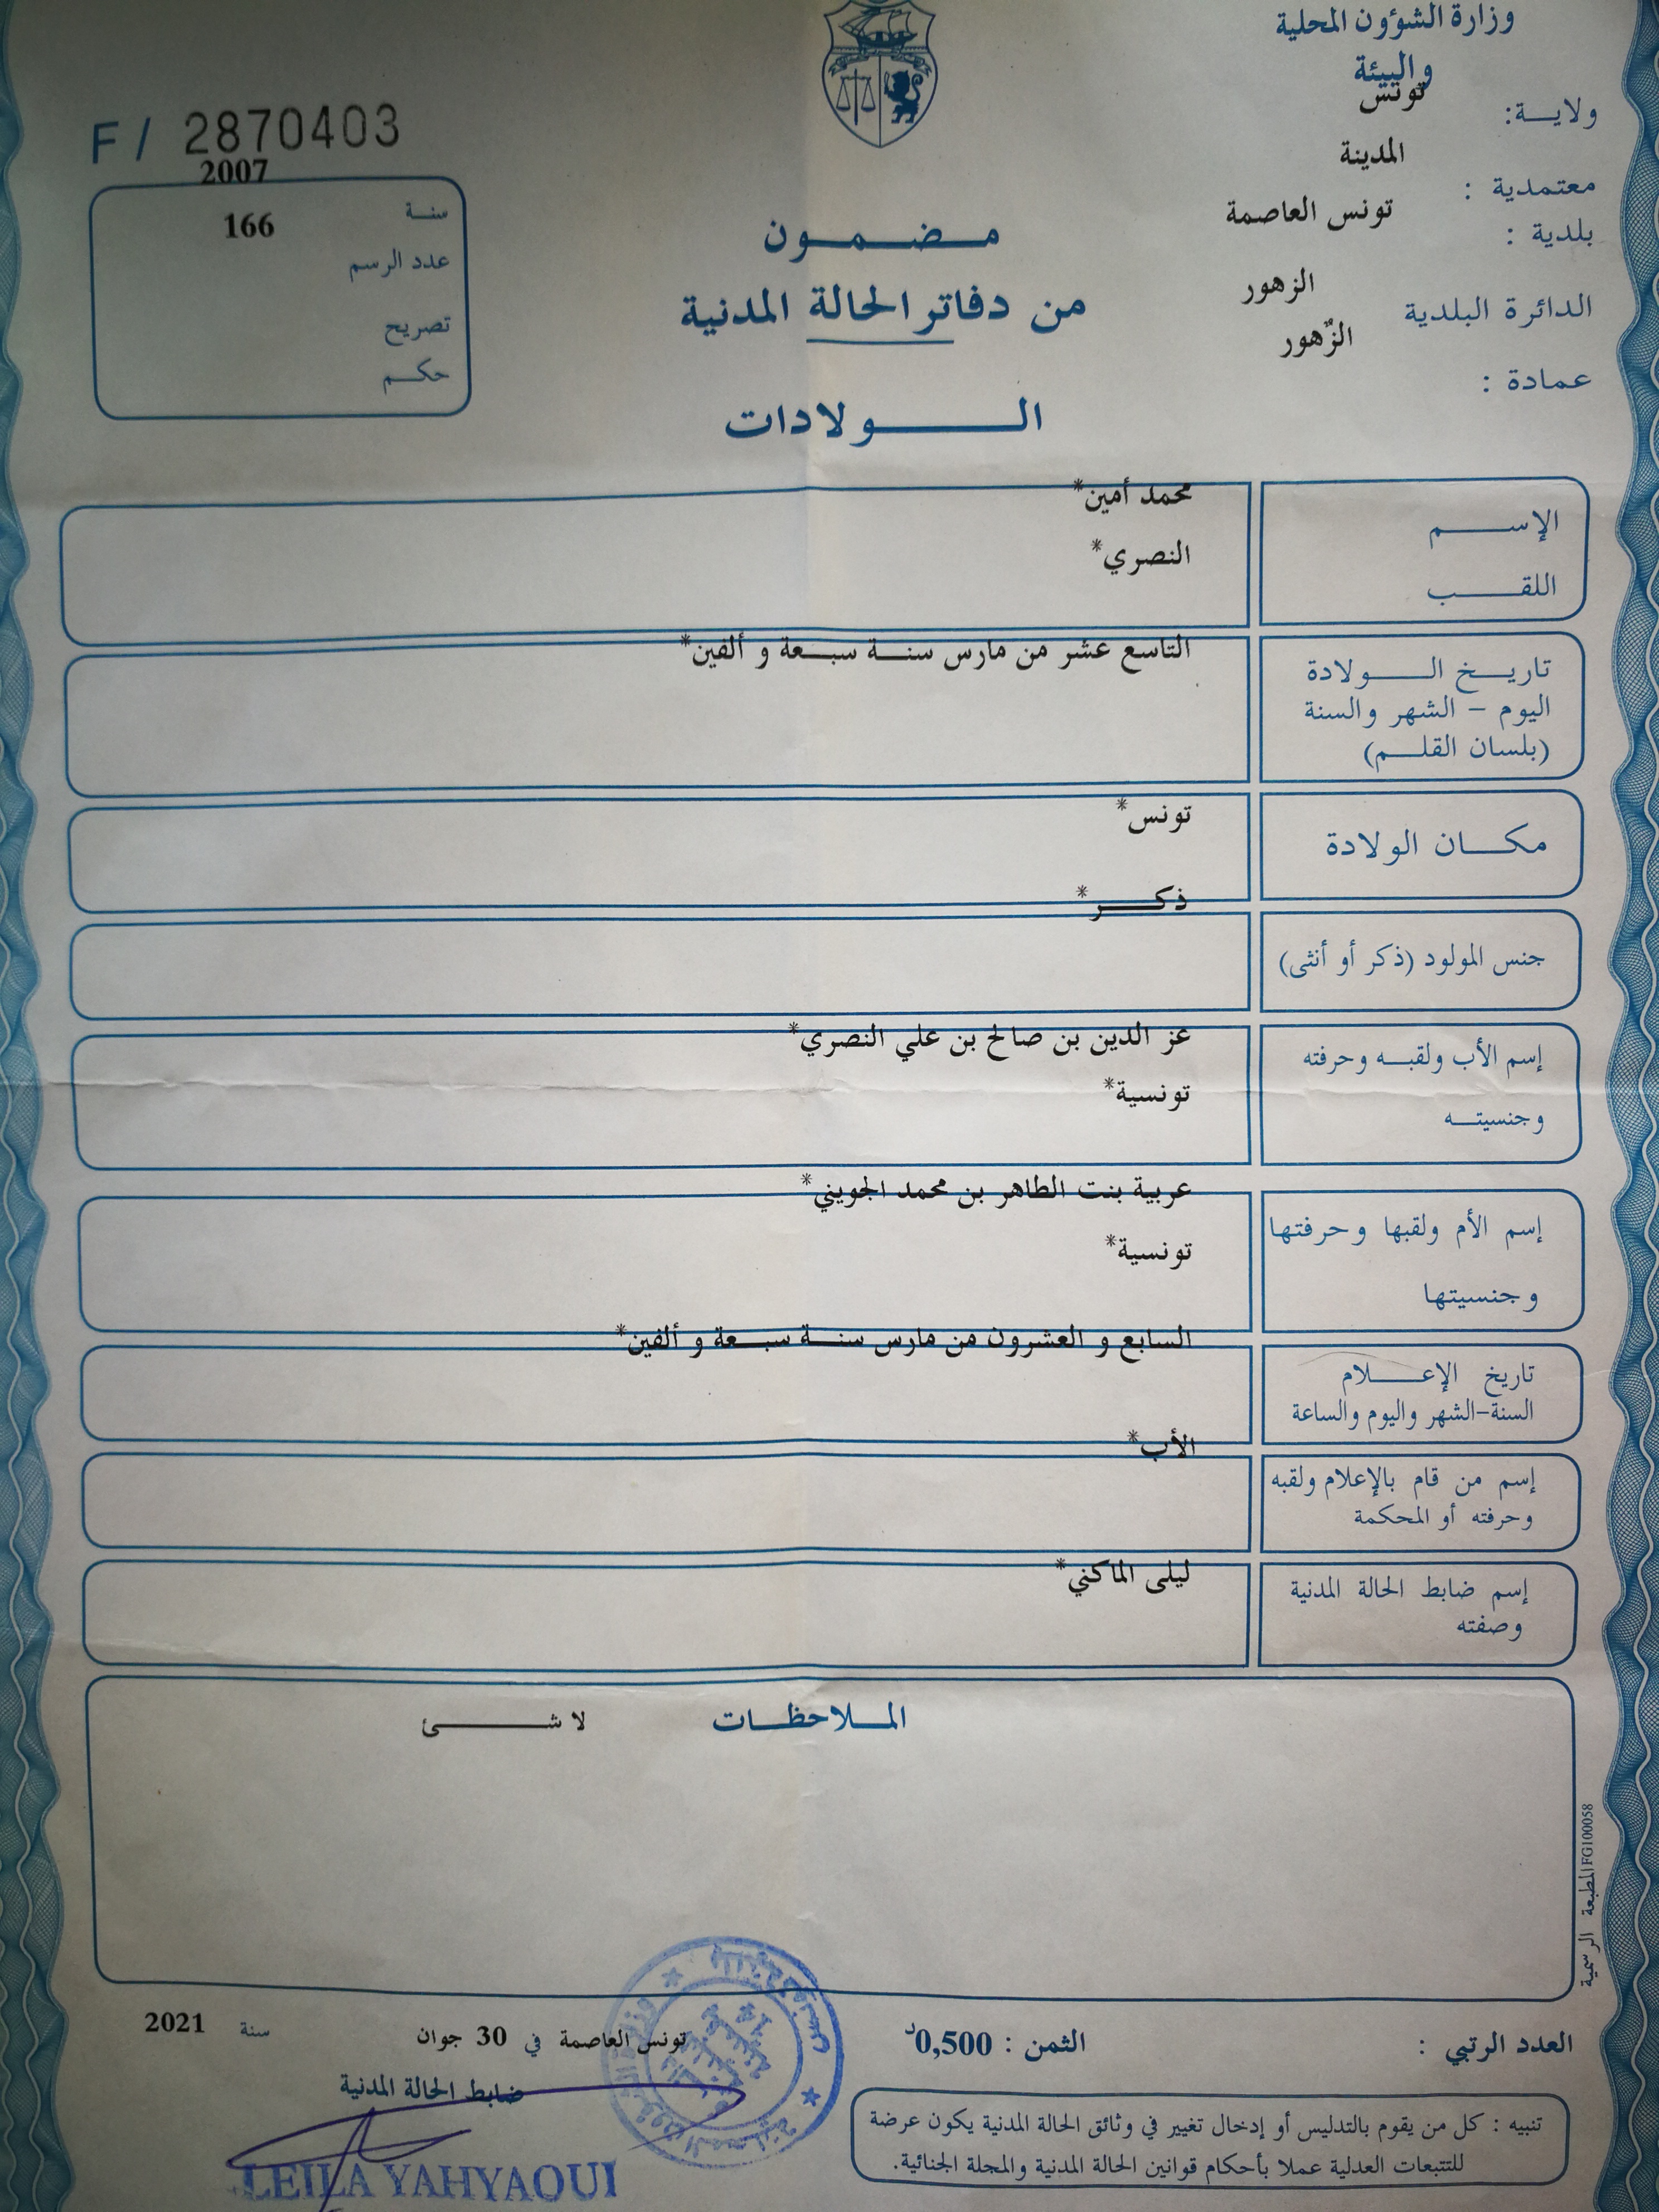 وزارة الشؤون المحلية
والبيئة
ولايـة: تونس
معتمدية : المدينة
بلدية : تونس العاصمة
الدائرة البلدية الزهور
عمادة : الزّهور
F / 2870403
سنة 2007
عدد الرسم 166
تصريح
حكم
مضمون
من دفاتر الحالة المدنية
الولادات
الإسم محمد أمين*
اللقب النصري*
تاريخ الولادة التاسع عشر من مارس سنة سبعة و ألفين*
اليوم - الشهر والسنة
(بلسان القلم)
مكان الولادة تونس*
جنس المولود (ذكر أو أنثى) ذكر*
إسم الأب ولقبه وحرفته عز الدين بن صالح بن علي النصري*
وجنسيته تونسية*
إسم الأم ولقبها وحرفتها عربية بنت الطاهر بن محمد الجويني*
وجنسيتها تونسية*
تاريخ الإعلام السابع و العشرون من مارس سنة سبعة و ألفين*
السنة-الشهر واليوم والساعة
إسم من قام بالإعلام ولقبه الأب*
وحرفته أو المحكمة
إسم ضابط الحالة المدنية ليلى الماكني*
وصفته
الملاحظات لا شئ
المطبعة الرسمية FG100058
العدد الرتبي : الثمن : 0,500د
تونس العاصمة في 30 جوان سنة 2021
ضابط الحالة المدنية
LEILA YAHYAOUI
تنبيه : كل من يقوم بالتدليس أو إدخال تغيير في وثائق الحالة المدنية يكون عرضة
للتتبعات العدلية عملا بأحكام قوانين الحالة المدنية والمجلة الجنائية.